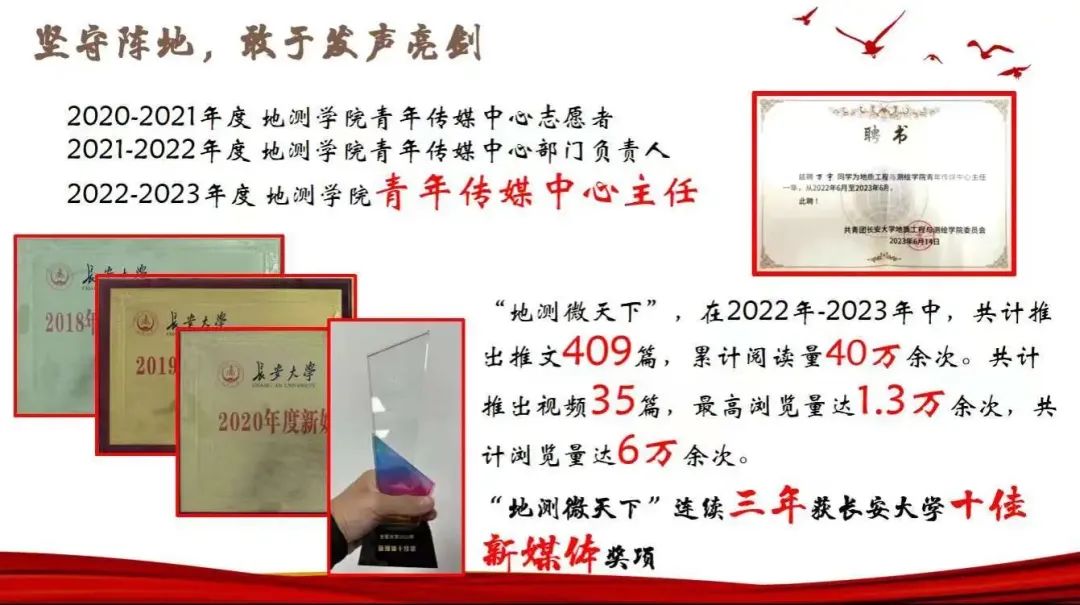 坚守阵地，敢于发声亮剑
2020-2021年度 地测学院青年传媒中心志愿者
2021-2022年度 地测学院青年传媒中心部门负责人
2022-2023年度 地测学院青年传媒中心主任
聘书
兹聘 万宇 同学为地质工程与测绘学院青年传媒中心主任
一年，从2022年6月至2023年6月。
此聘！
共青团长安大学地质工程与测绘学院委员会
2023年6月14日
长安大学
2018年
长安大学
2019
长安大学
CHANG'AN UNIVERSITY
2020年度新
“地测微天下”，在2022年-2023年中，共计推
出推文409篇，累计阅读量40万余次。共计
推出视频35篇，最高浏览量达1.3万余次，共
计浏览量达6万余次。
“地测微天下”连续三年获长安大学十佳
新媒体奖项